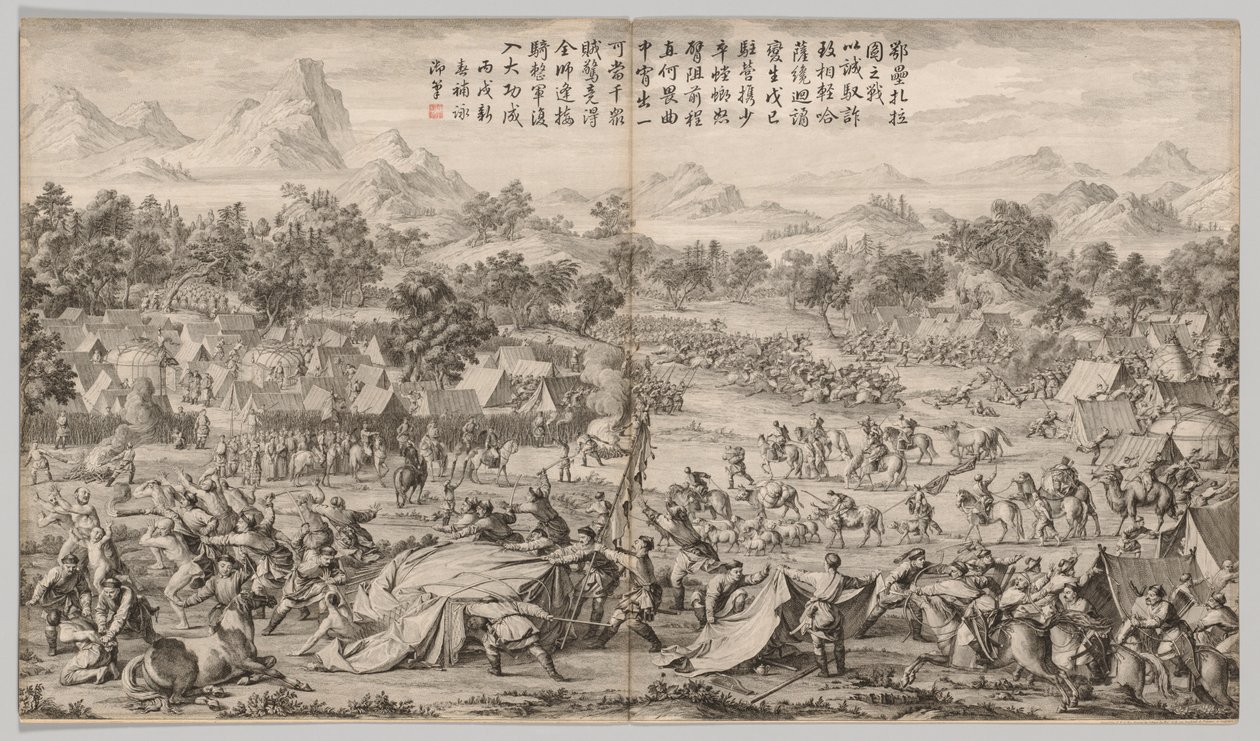 鄂壘扎拉
圖之戰
以誠馭詐
致相輕哈
薩纔迴譎
變生戊己
駐營攜少
卒螳螂怒
臂阻前程
直何畏曲
中宵出一
可當千衆
賊驚竟得
全師逢接
騎整軍復
入大功成
丙戌新
春補詠
御筆